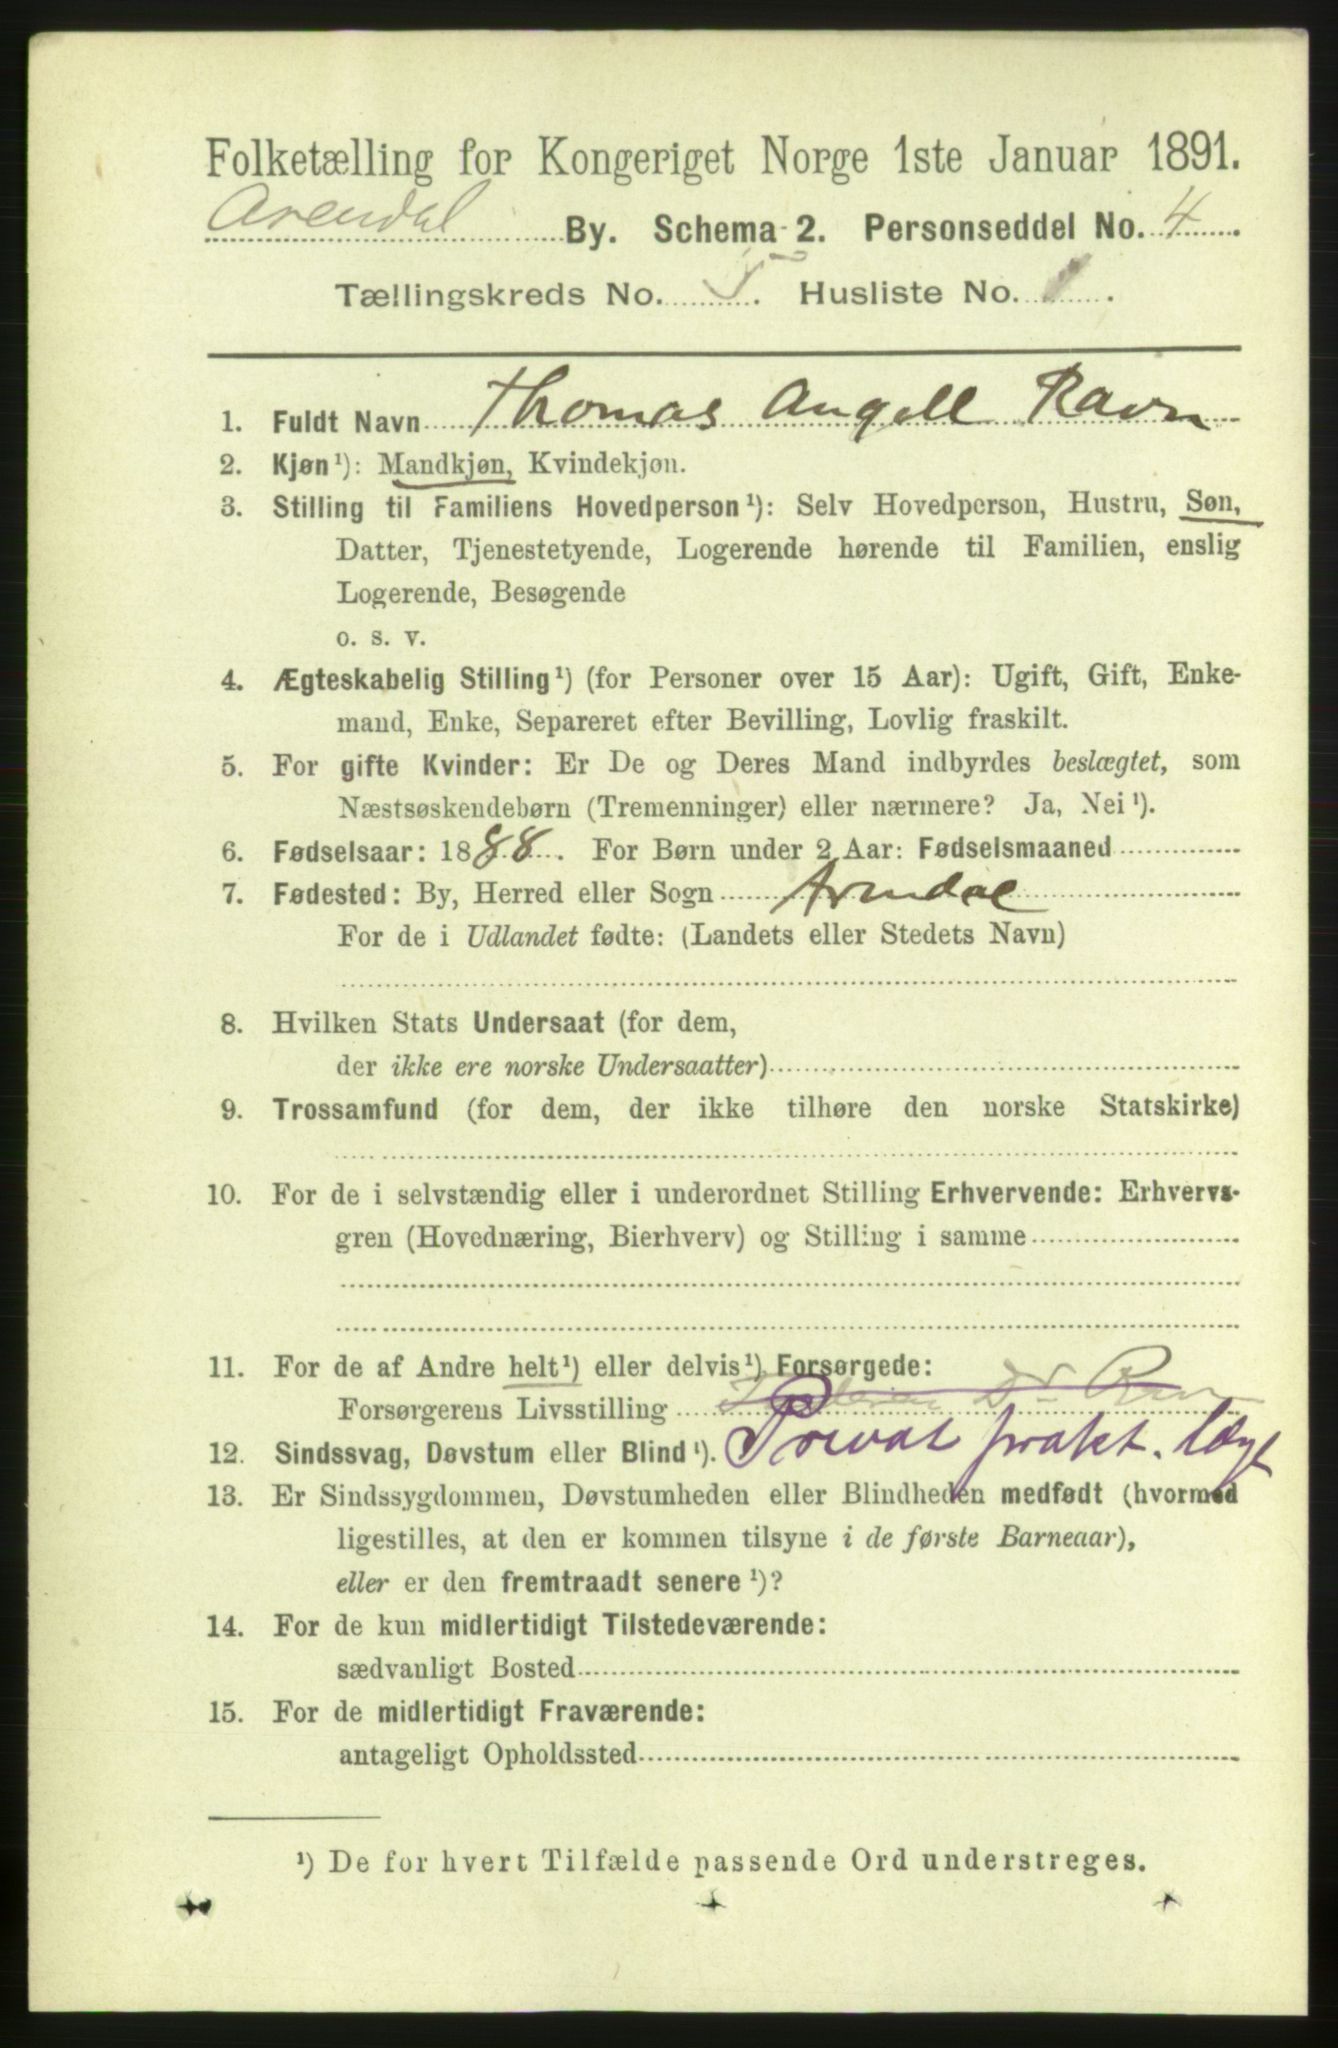 Folketælling for Kongeriget Norge 1ste Januar 1891.
Arendal By. Schema 2. Personseddel No. 4.
Tællingskreds No. 5. Husliste No. 1.
1. Fuldt Navn Thomas Angell Ravn
2. Kjøn¹): Mandkjøn, Kvindekjøn.
3. Stilling til Familiens Hovedperson¹): Selv Hovedperson, Hustru, Søn,
Datter, Tjenestetyende, Logerende hørende til Familien, enslig
Logerende, Besøgende
o. s. v.
4. Ægteskabelig Stilling¹) (for Personer over 15 Aar): Ugift, Gift, Enke-
mand, Enke, Separeret efter Bevilling, Lovlig fraskilt.
5. For gifte Kvinder: Er De og Deres Mand indbyrdes beslægtet, som
Næstsøskendebørn (Tremenninger) eller nærmere? Ja, Nei¹).
6. Fødselsaar: 1888. For Børn under 2 Aar: Fødselsmaaned
7. Fødested: By, Herred eller Sogn Arendal
For de i Udlandet fødte: (Landets eller Stedets Navn)
8. Hvilken Stats Undersaat (for dem,
der ikke ere norske Undersaatter)
9. Trossamfund (for dem, der ikke tilhøre den norske Statskirke)
10. For de i selvstændig eller i underordnet Stilling Erhvervende: Erhvervs-
gren (Hovednæring, Bierhverv) og Stilling i samme
11. For de af Andre helt¹) eller delvis¹) Forsørgede:
Forsørgerens Livsstilling Dr Ravn
Privat prakt. læge
12. Sindssvag, Døvstum eller Blind¹).
13. Er Sindssygdommen, Døvstumheden eller Blindheden medfødt (hvormed
ligestilles, at den er kommen tilsyne i de første Barneaar),
eller er den fremtraadt senere¹)?
14. For de kun midlertidigt Tilstedeværende:
sædvanligt Bosted
15. For de midlertidigt Fraværende:
antageligt Opholdssted
¹) De for hvert Tilfælde passende Ord understreges.